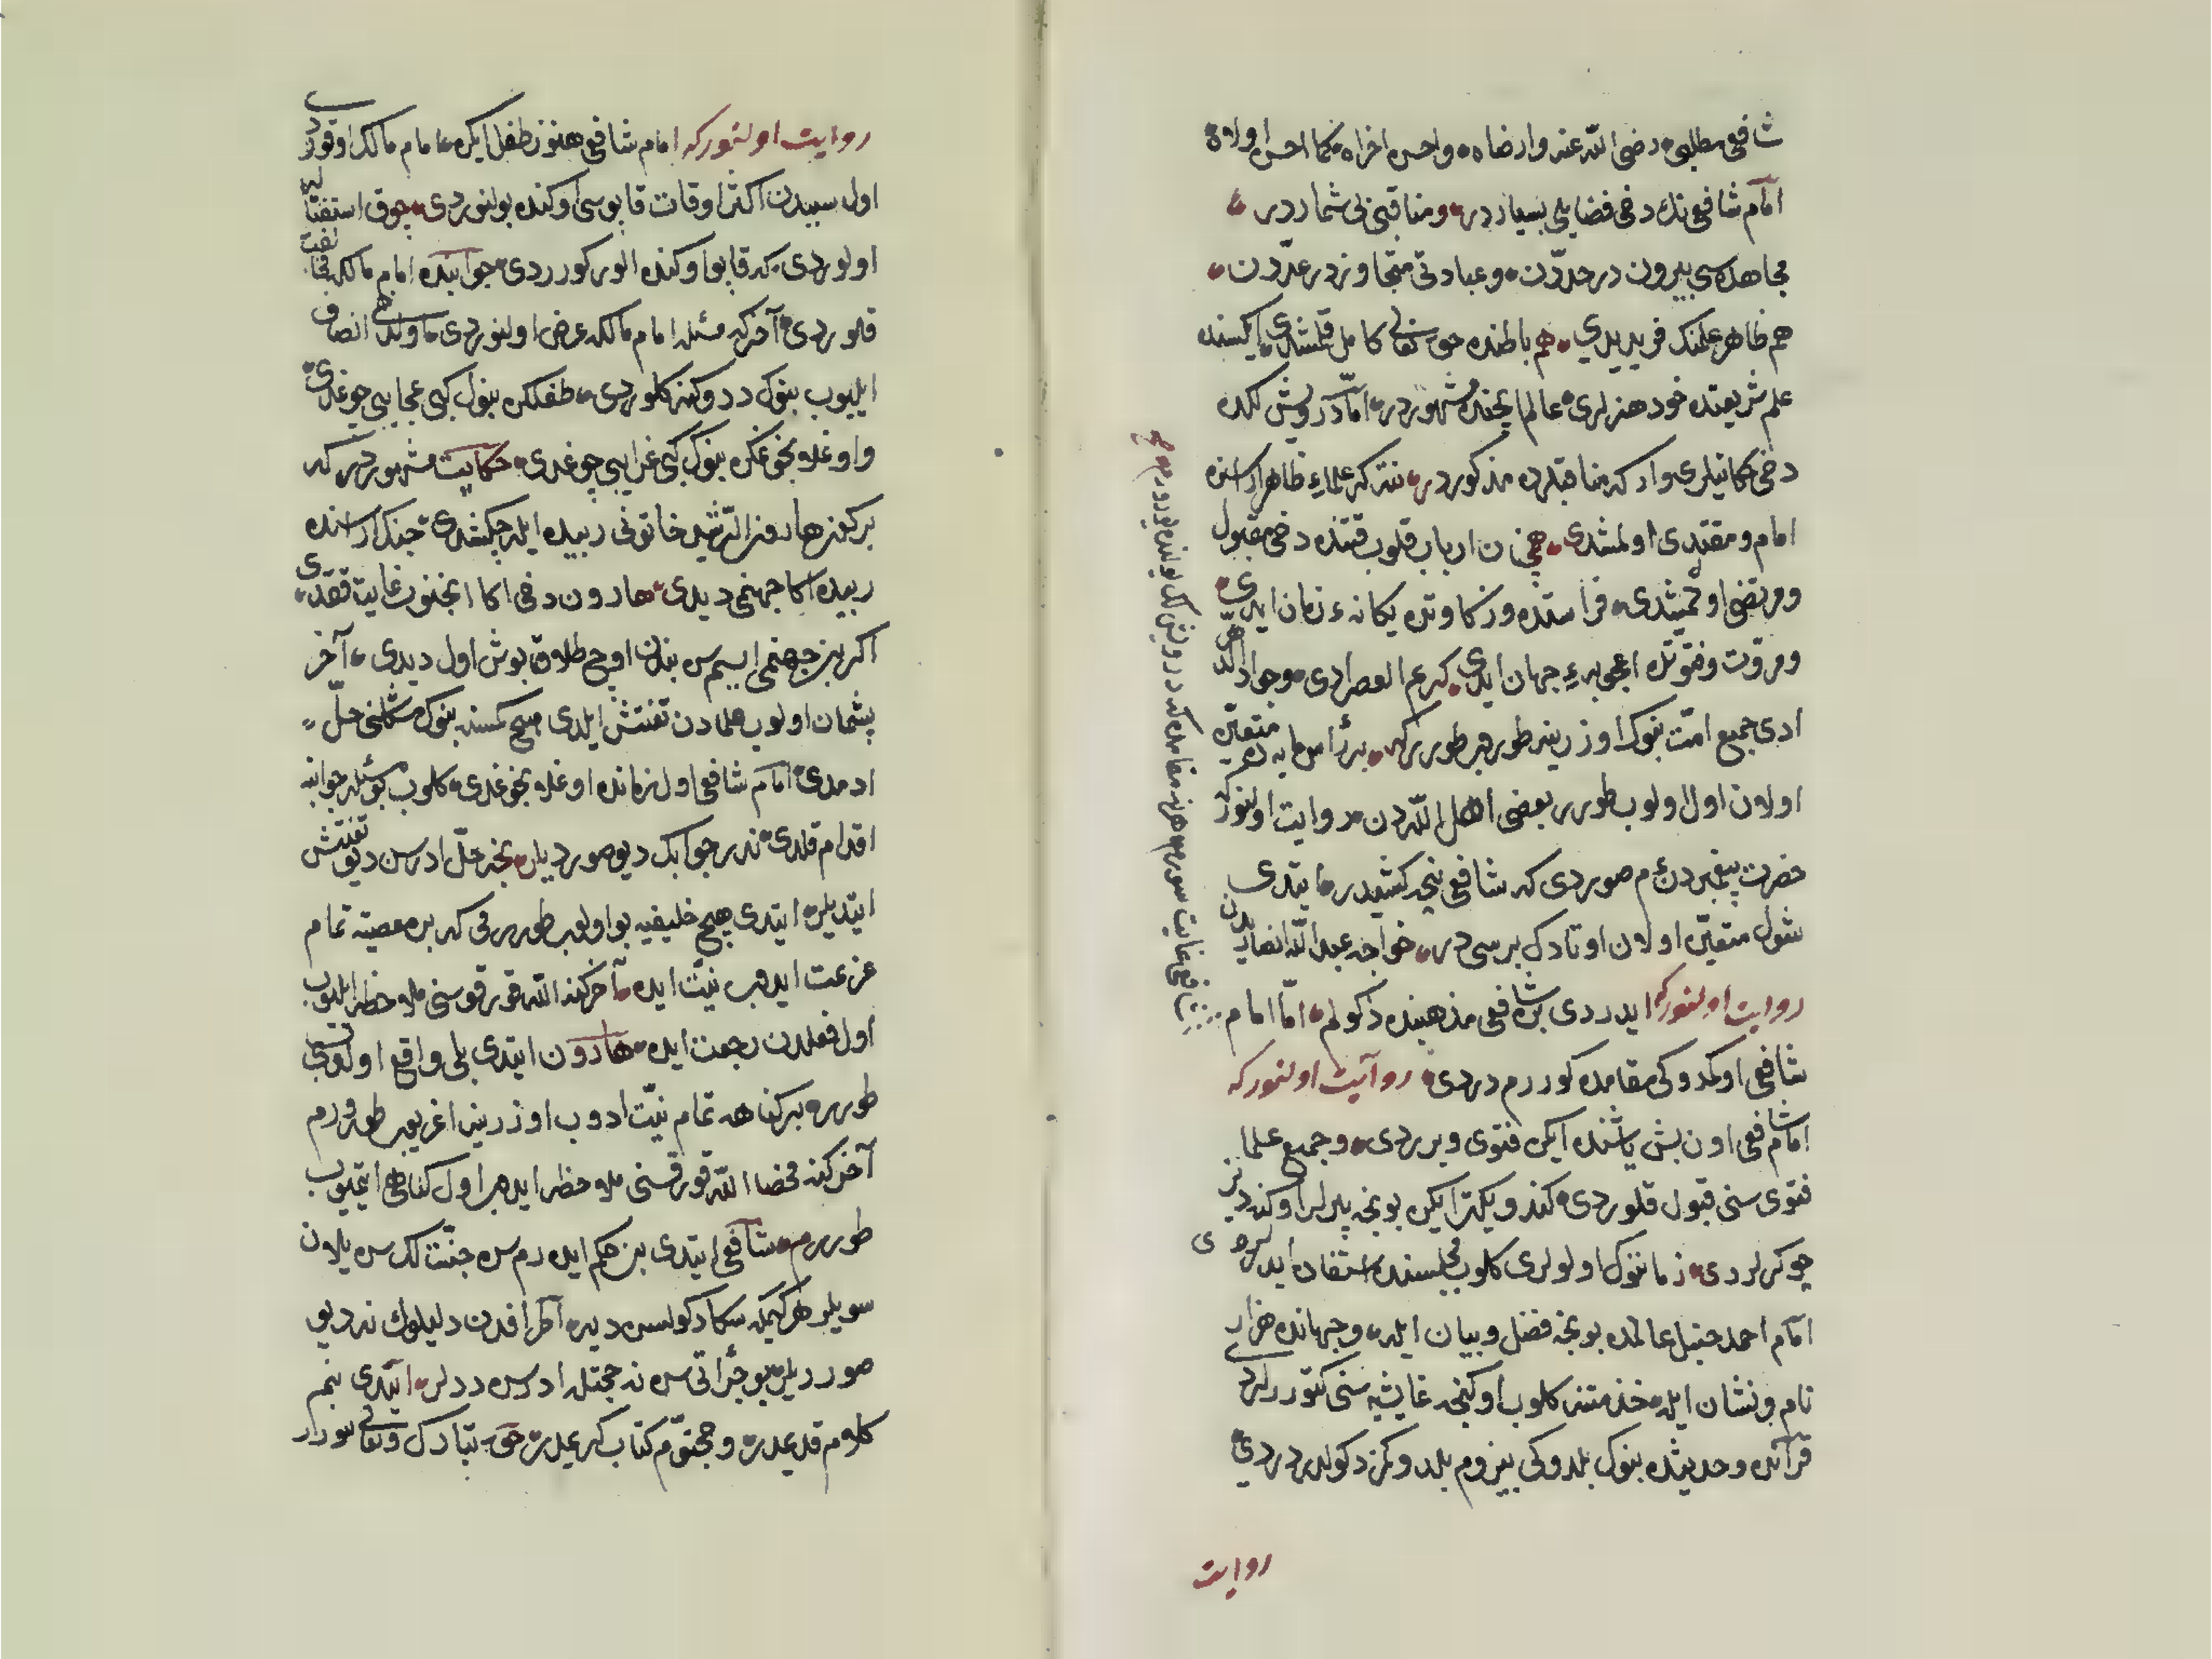 شافعی مطلبی رضی الله عنه وارضاه واحسن اخراه کما احسن اولاه
امام شافعی نك دخی فضایلی بسیاردر ومناقبی بی شماردر
مجاهده سی بیرون در حددن وعبادتی متجاوزدر عددن
هم ظاهر علمنك فریدیدی هم باطنده حق تعالی کامل قلمشدی ایکسنده
علم شریعتده خود هنرلری عالم ایچنده مشهوردر اما درویش لکده
دخی حکایتلری وار که مناقبلرده مذکوردر نته کم علماء ظاهر اراسنده
امام ومقتدی اولمشدی همچنان ارباب قلوب قتنده دخی مقبول
ومرتضی اولمشدی فراستده وزکاوتده یکانهء زمان ایدی
ومروتت وفتوتده اعجوبهء جهان ایدی کریم العصردی وجواد الدهر
ادی جمیع امت بنوك اوزرینه طوروبر طورر که بر رأس مایه ده متعین
اولان اول اولوب طورر بعضی اهل الله دن روایت اولنور که
حضرت پیغمبردن صوردی که شافعی نیجه کشیدر ایتدی
شول متعین اولان اوتادك برسی در خواجه عبدالله انصاریدن
روایت اولنور که ایدردی بن شافعی مذهبنده دکولم اما امام
شافعی اوکمدوکی مقامده کوررم دردی روایت اولنور که
امام شافعی اون بش یاشنده ایکن فتوی ویرردی وجمیع علما
فتوی سنی قبول قلوردی کندو یکت ایکن بونجه پیرلر اوکنده دیز
چوکرلردی زماننوك اولولری کلوب مجلسنده استفاده ایدرلردی
امام احمد حنبل عالمده بونجه فضل وبیان ایله وجهانده هزار
نام ونشان ایله خدمتنه کلوب اوکنجه غاشیه سنی کتوررلردی
قرآنده وحدیثده بنوك بلدوکی بیزوم بلدوکمز دکولدر دردی
شافعی غایت سوردم هرنه مقامده کم درویش لك بولنده یورردم
روایت
روایت اولنور که امام شافعی هنوز طفل ایکن امام مالك اوقوردی
اول سببدن اکثر اوقات قاپوسی اوکنده بولنوردی چوق استفتا لر
اولوردی که قاپو اوکنده الور کوردی جوابنده امام مالکه مخالفت
قلوردی آخر که مسئله امام مالکه عرض اولنوردی اولدخی انصاف
ایلیوب بنوك ددوکنه کلوردی طفلکن بنوك کبی عجایبی چوغدی
واوغلانجوغکن بنوك کبی غرایبی چوغدی حکایت مشهوردر که
بر کز هارون الرشید خاتونی زبیده ایله چکشدی جنك اراسنده
زبیده اکا جهنمی دیدی هارون دخی اکا انجنوب غایت ققدی
اکر بن جهنمی ایسم سن بندن اوچ طلاق بوش اول دیدی آخر
پشمان اولوب علمادن تفتش ایلدی هیچ کمسنه بنوك مشکلنی حل
ادمدی امام شافعی اول زمانده اوغلانجوغدی کلوب بو مسئله جوابنه
اقدام قلدی ندر جوابك دیو صوردیلر نجه حل ادرسن دیو تفتش
ایتدیلر ایتدی هیچ خلیفیه بو اولوب طوررمی که بر معصیته تمام
عزیمت ایدوب نیت ایده آخر کنه الله قورقوسنی ملاحظه ایلیوب
اول فعلدن رجعت ایده هارون ایتدی بلی واقع اولوبدر
طورر بر کناهه تمام نیت ادوب اوزرینه اغریوب طوررم
آخر کنه محضا الله قورقسنی ملاحظه ایدوب اول کناهی ایتمیوب
طوررم شافعی ایتدی بن حکم ایده رم سن جنتلك سن یلان
سویلر هر کیمکه سکا دکولسن دیه اطرافدن دلیلوك نه در دیو
صوردیلر بو جراتی سن نه حجتله ادرسن ددلر ایتدی بنم
کلامم قدیمدر وحجتوم کتاب کریمدر حق تبارك وتعالی بیورر